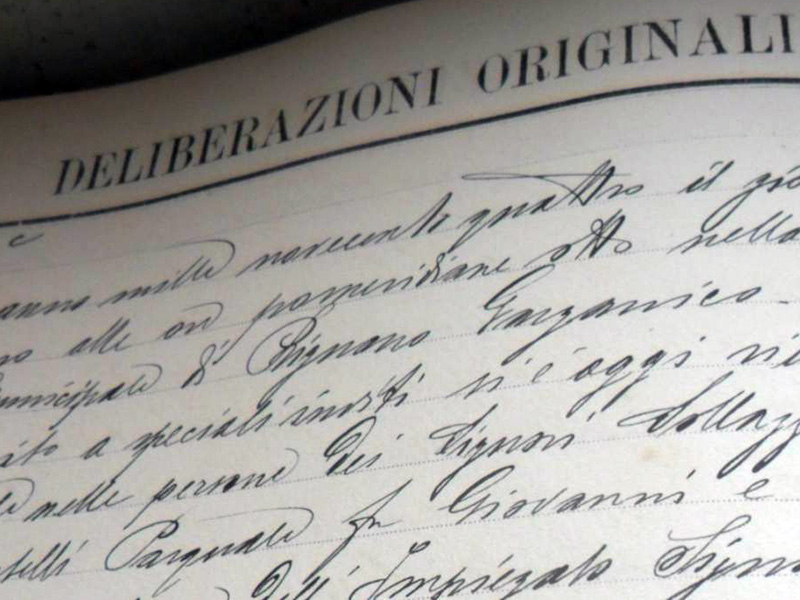 DELIBERAZIONI ORIGINALI
anno mille novecento quattro il gio
alle ore pomeridiane otto nella
municipale di Rignano Garganico
a speciali inviti si è oggi
nelle persone dei Signori Dollag
telli Pasquale fu Giovanni e
dell' Impiegato Signo